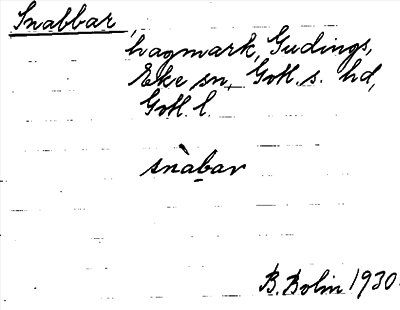 Snabbar,
hagmark, Gudings,
Eke sn, Gotl. s. hd,
Gotl. l.
snàbar
B. Bolin 1930.